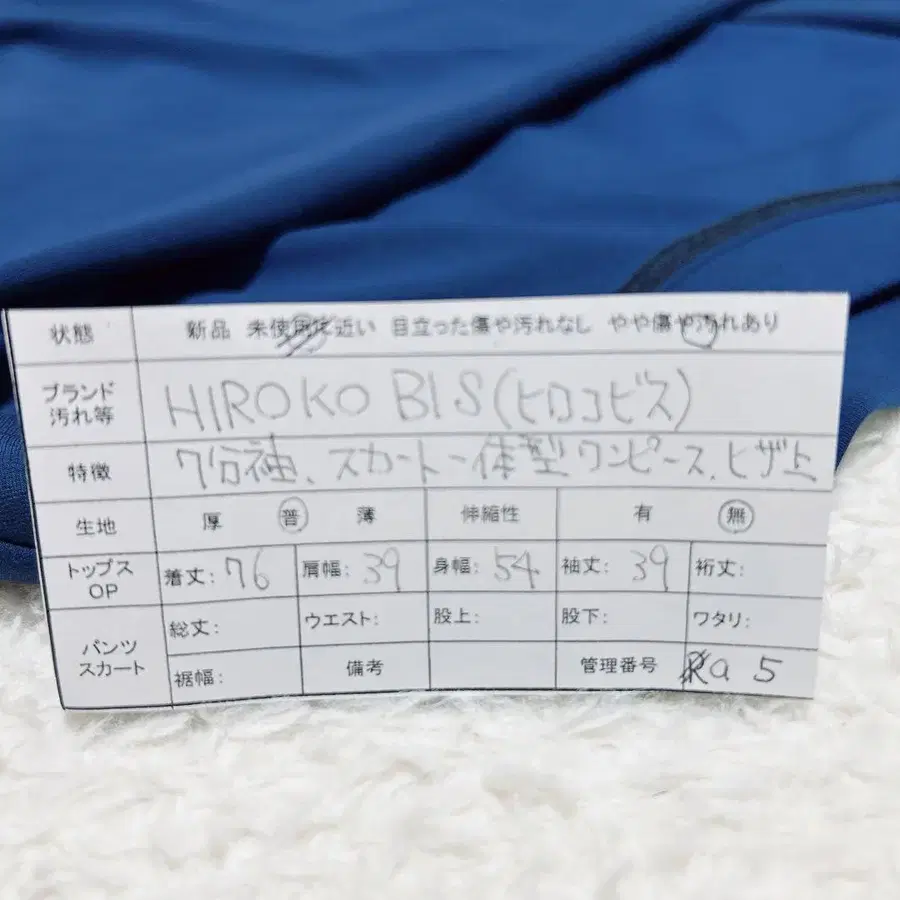 状態 新品 未使用に近い 目立った傷や汚れなし やや傷や汚れあり
ブランド 汚れ等 HIROKO BIS(ヒロコビス)
特徴 7分袖、スカート一体型ワンピース、ヒザ上
生地 厚 普 薄 伸縮性 有 無
トップス OP 着丈:76 肩幅:39 身幅:54 袖丈:39 裄丈:
パンツ スカート 総丈: ウエスト: 股上: 股下: ワタリ:
裾幅: 備考 管理番号 Ra 5